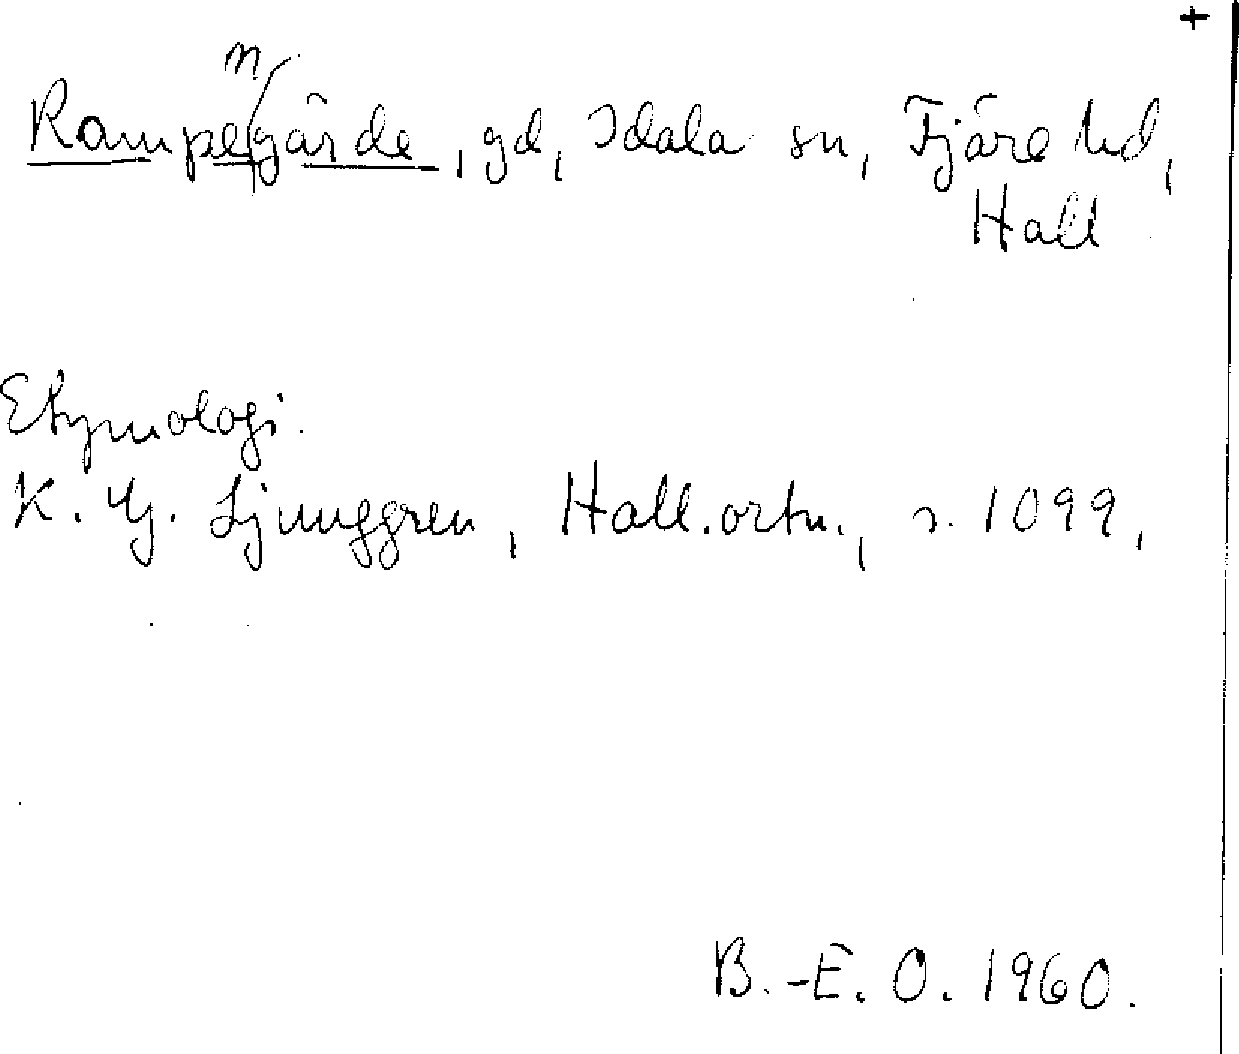 +
Rampengärde, gd, Idala sn, Fjäre hd,
Hall
Etymologi.
K. G. Ljunggren, Hall. ortn., s. 1099.
B.-E. O. 1960.